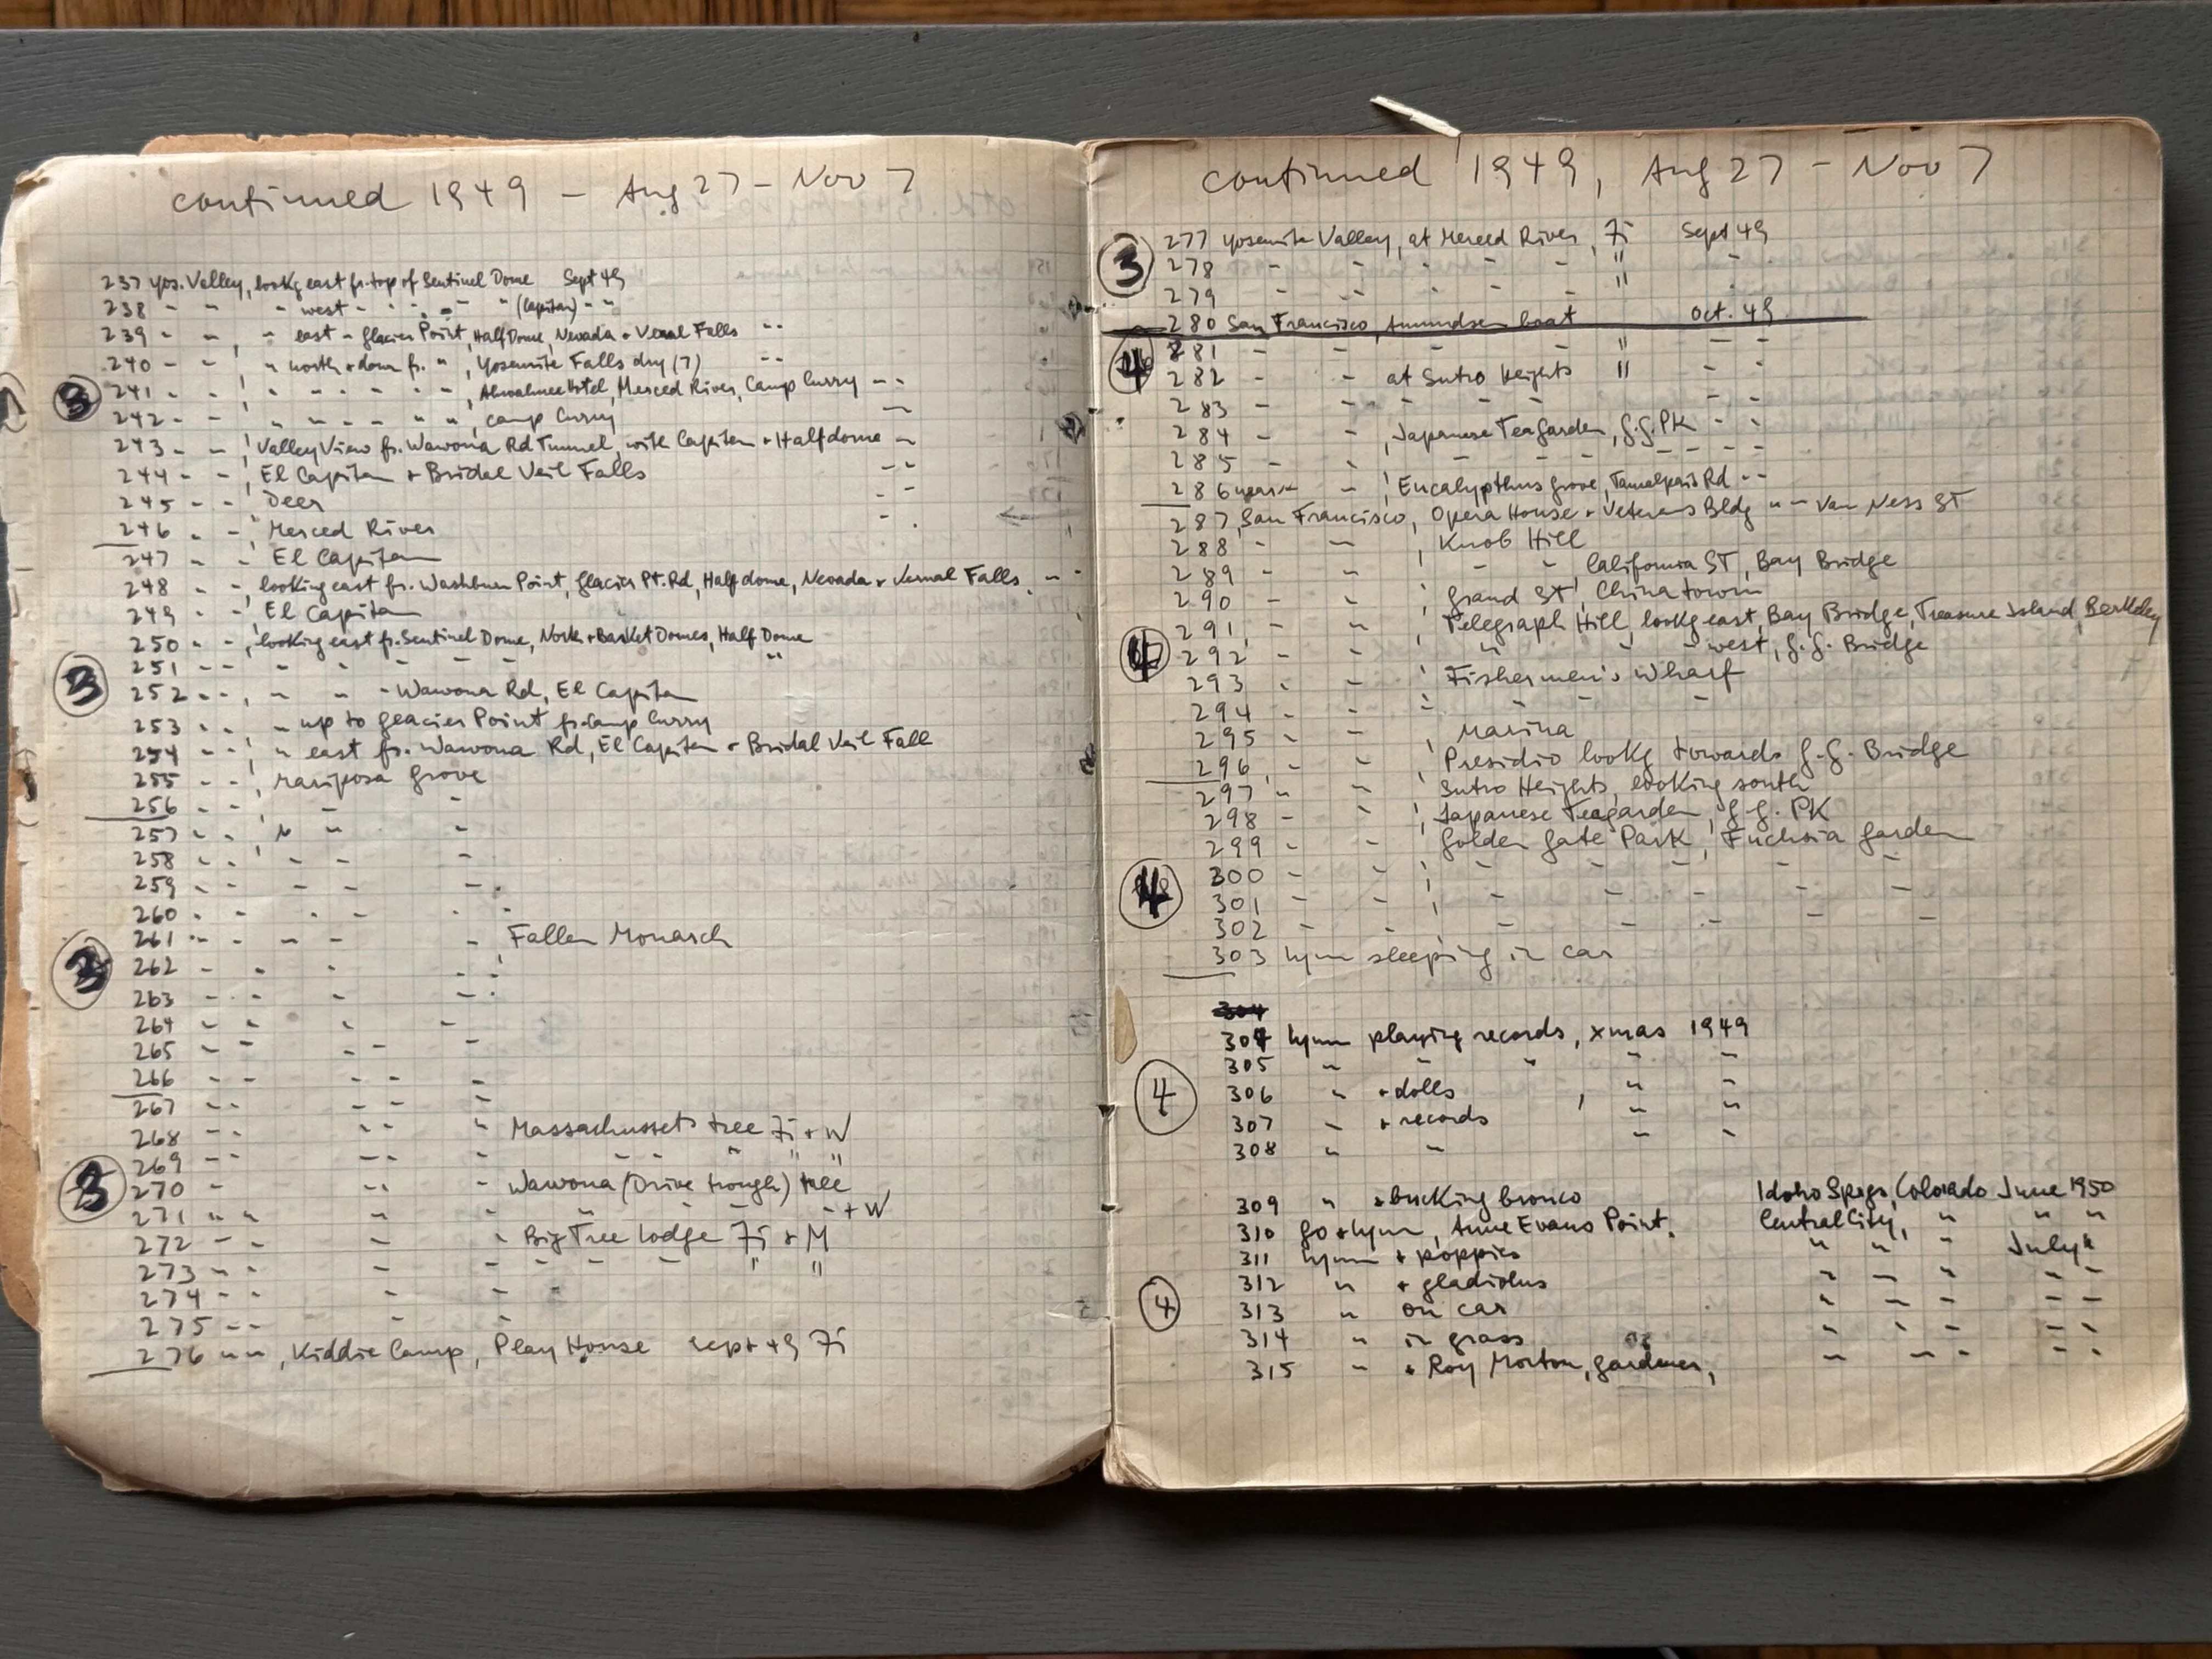 continued 1949 - Aug 27 - Nov 7
237 Yos. Valley, lookg east fr. top of Sentinel Dome Sept 49
238 - - - west - - - - " (Capitan) - -
239 - - , - east - Glacier Point, Half Dome, Nevada + Vernal Falls - -
240 - - " north + down fr. " , Yosemite Falls dry (7) - -
3 241 - - , " - - - - - , Ahwahnee Hotel, Merced River, Camp Curry - -
242 - - , " - - " " " , Camp Curry - -
243 - - , Valley View fr. Wawona Rd Tunnel, with Capitan + Halfdome - -
244 - - , El Capitan + Bridal Veil Falls - -
245 - - , Deer - -
246 - - , Merced River - -
247 - - , El Capitan
248 - - , looking east fr. Washburn Point, Glacier Pt. Rd, Half dome, Nevada + Vernal Falls, - -
249 - - , El Capitan
250 - - , looking east fr. Sentinel Dome, North + Basket Domes, Half Dome
3 251 - - - - - - - "
252 - - , - - - Wawona Rd, El Capitan
253 - - , - up to Glacier Point fr. Camp Curry
254 - - , " east fr. Wawona Rd, El Capitan + Bridal Veil Fall
255 - - , Mariposa Grove
256 - - , - -
257 - - , " - -
258 - - , - - -
259 - - - - -
260 - - - - -
261 - - - - - , Fallen Monarch
3 262 - - - - -
263 - - - - -
264 - - - -
265 - - - - -
266 - - - - -
267 - - - - -
268 - - - - " Massachussets tree Fi + W
269 - - - - - - - " " "
3 270 - - - - Wawona (Drive trough) tree
271 " " - - - - - - + W
272 - - - - Big Tree Lodge Fi + M
273 - - - - - - - " "
274 - - - -
275 - - - -
276 " " , Kiddie Camp, Play House Sept 49 Fi
continued 1949, Aug 27 - Nov 7
3 277 Yosemite Valley, at Merced River, Fi Sept 49
278 - - - - - " -
279 - - - - - " -
280 San Francisco, Amundsen boat Oct. 49
4 281 - - - - " - -
282 - - at Sutro Heights " - -
283 - - - - - - - -
284 - - , Japanese Teagarden, G.G. PK - -
285 - - - - - - - -
286 near - - , Eucalypthus Grove, Tamalpais Rd - -
287 San Francisco, Opera House + Veterans Bldg " - Van Ness ST
288 - - , Knob Hill
289 - - , - - California ST, Bay Bridge
290 - - , Grand ST, Chinatown
291 - - , Telegraph Hill, lookg east, Bay Bridge, Treasure Island, Berkeley
4 292 - - , " - - west, G.G. Bridge
293 - - , Fishermen's Wharf
294 - - : - - -
295 - - , Marina
296 - - , Presidio lookg towards G.G. Bridge
297 " - , Sutro Heights, looking south
298 - - , Japanese Teagarden, G.G. PK
299 - - , Golden Gate Park, Fuchsia Garden
4 300 - - , - - - - -
301 - - , - - - - -
302 - - - - - - -
303 Lynn sleeping in car
304
304 Lynn playing records, xmas 1949
305 " - " " -
4 306 " + dolls , " -
307 - + records " "
308 " - - -
309 " + bucking bronco Idaho Spgs, Colorado June 1950
310 Go + Lynn, Anne Evans Point. Central City, " " "
311 Lynn + poppies " " - July "
312 " + gladiolus - - " - -
4 313 " on car " - - - -
314 " in grass " - - - -
315 - + Roy Morton, gardener, - - - - -